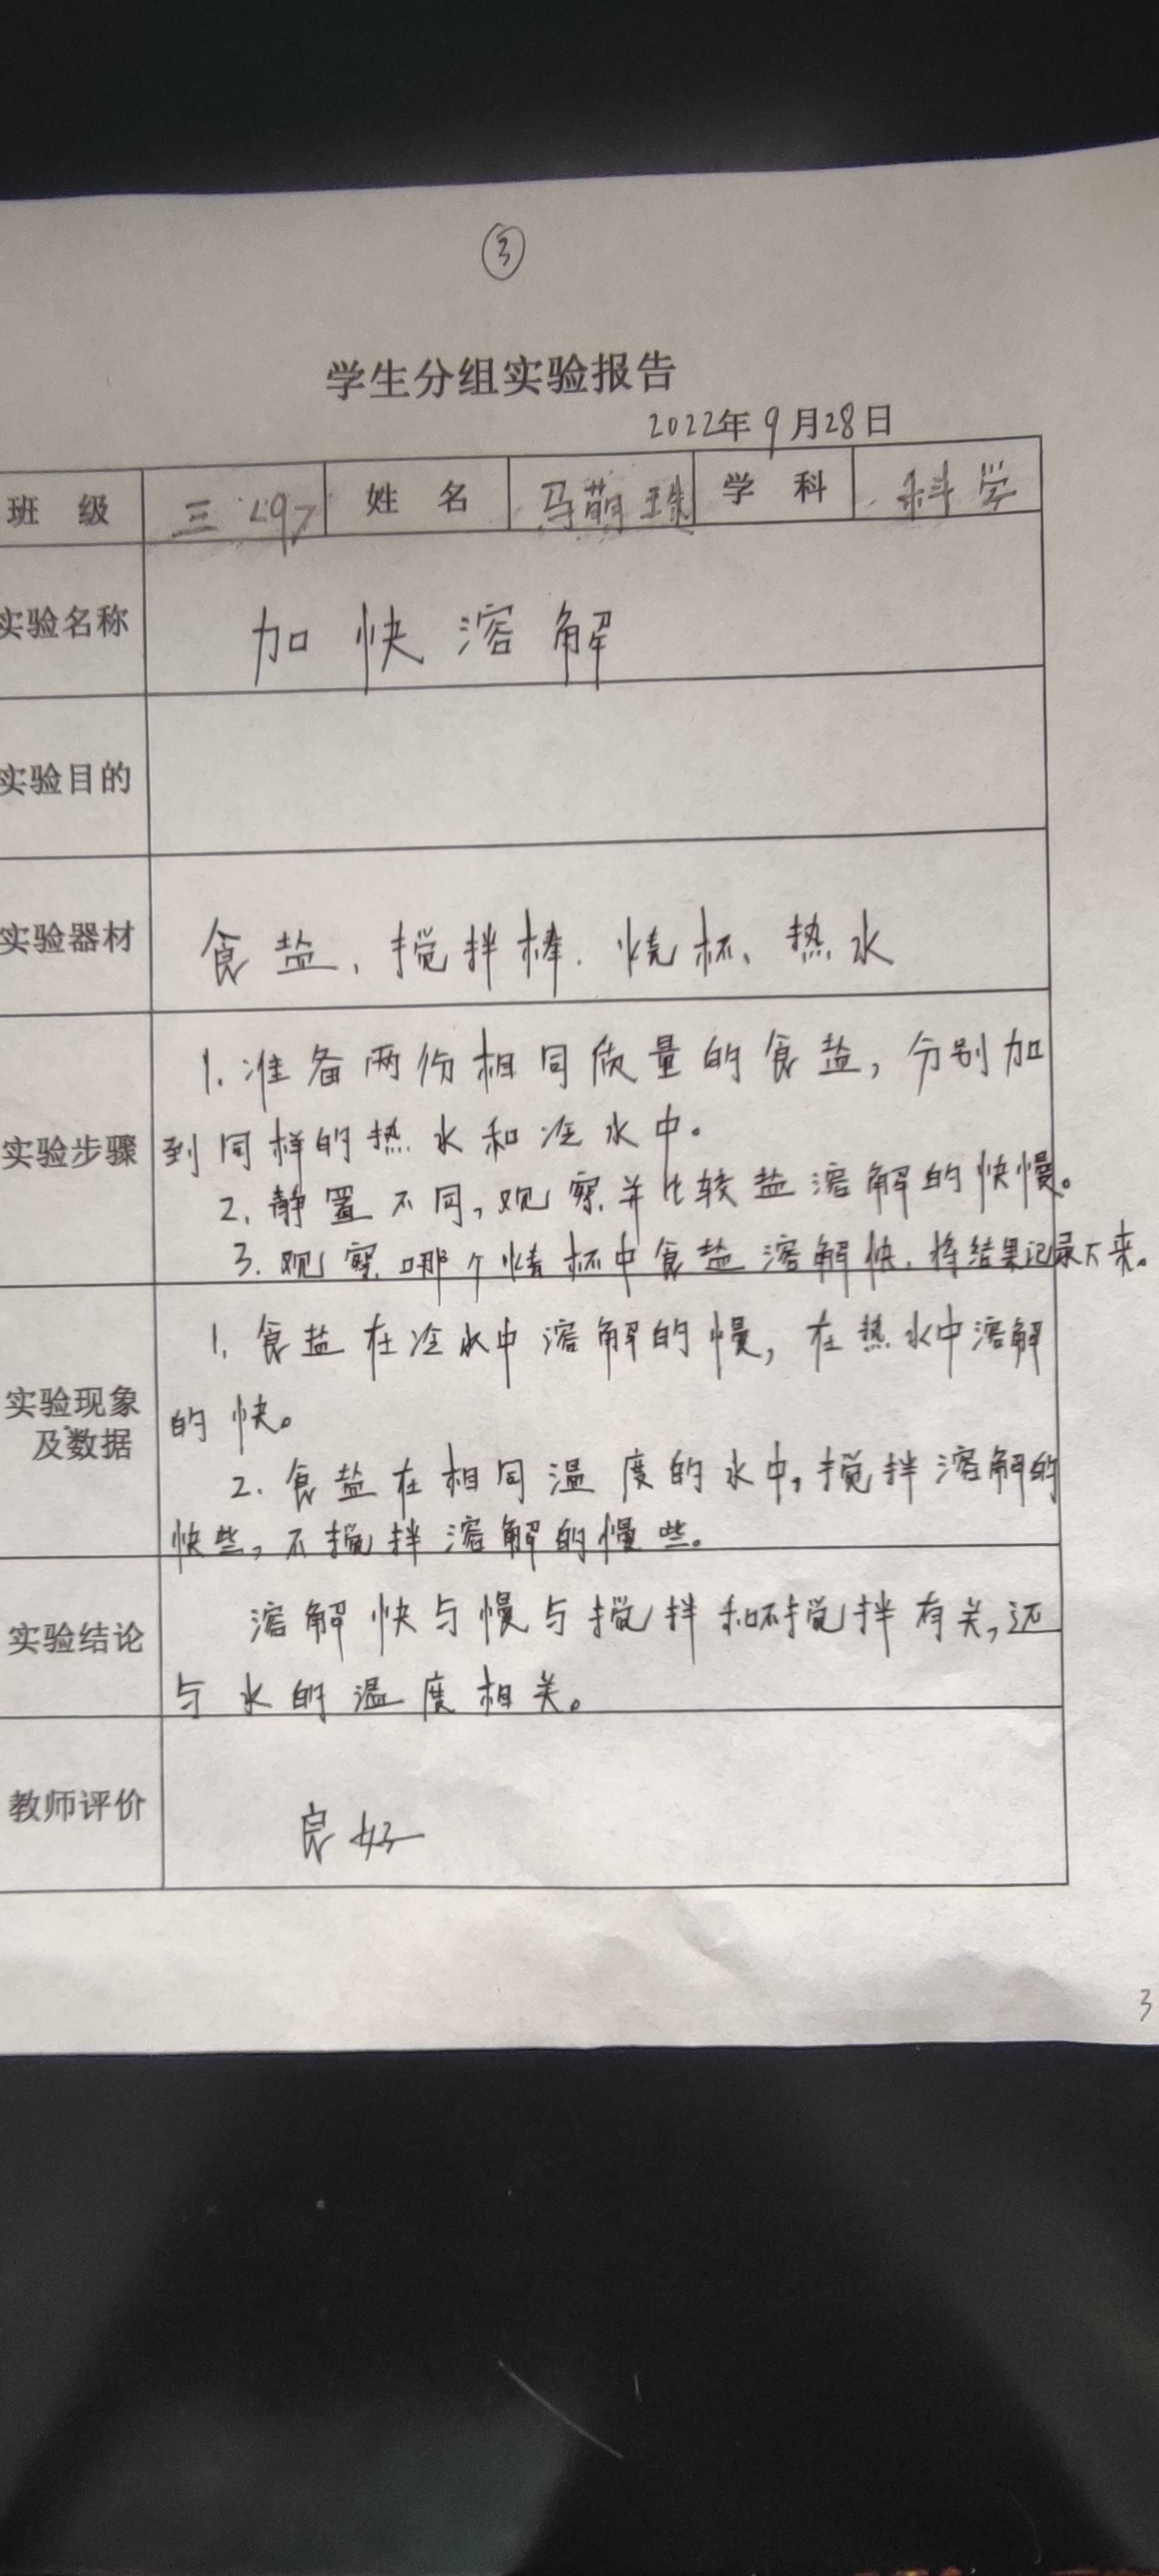 ③
学生分组实验报告
2022年9月28日
班 级 三<9> 姓 名 马萌珠 学 科 科学
实验名称 加快溶解
实验目的
实验器材 食盐、搅拌棒、烧杯、热水
1.准备两份相同质量的食盐,分别加
实验步骤 到同样的热水和冷水中。
2.静置不同,观察并比较盐溶解的快慢。
3.观察哪个烧杯中食盐溶解快,将结果记录下来。
1.食盐在冷水中溶解的慢,在热水中溶解
实验现象
及数据
的快。
2.食盐在相同温度的水中,搅拌溶解的
快些,不搅拌溶解的慢些。
溶解快与慢与搅拌和不搅拌有关,还
实验结论
与水的温度相关。
教师评价 良好
3